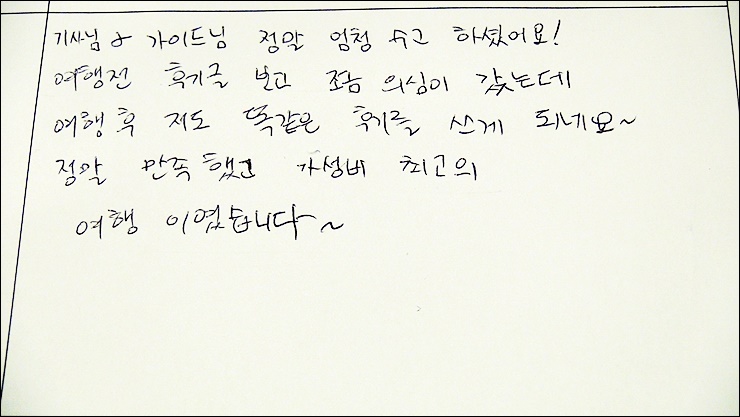 기사님 & 가이드님 정말 엄청 수고 하셨어요!
여행전 후기글 보고 조금 의심이 갔는데
여행 후 저도 똑같은 후기를 쓰게 되네요~
정말 만족 했고 가성비 최고의
여행 이였습니다~